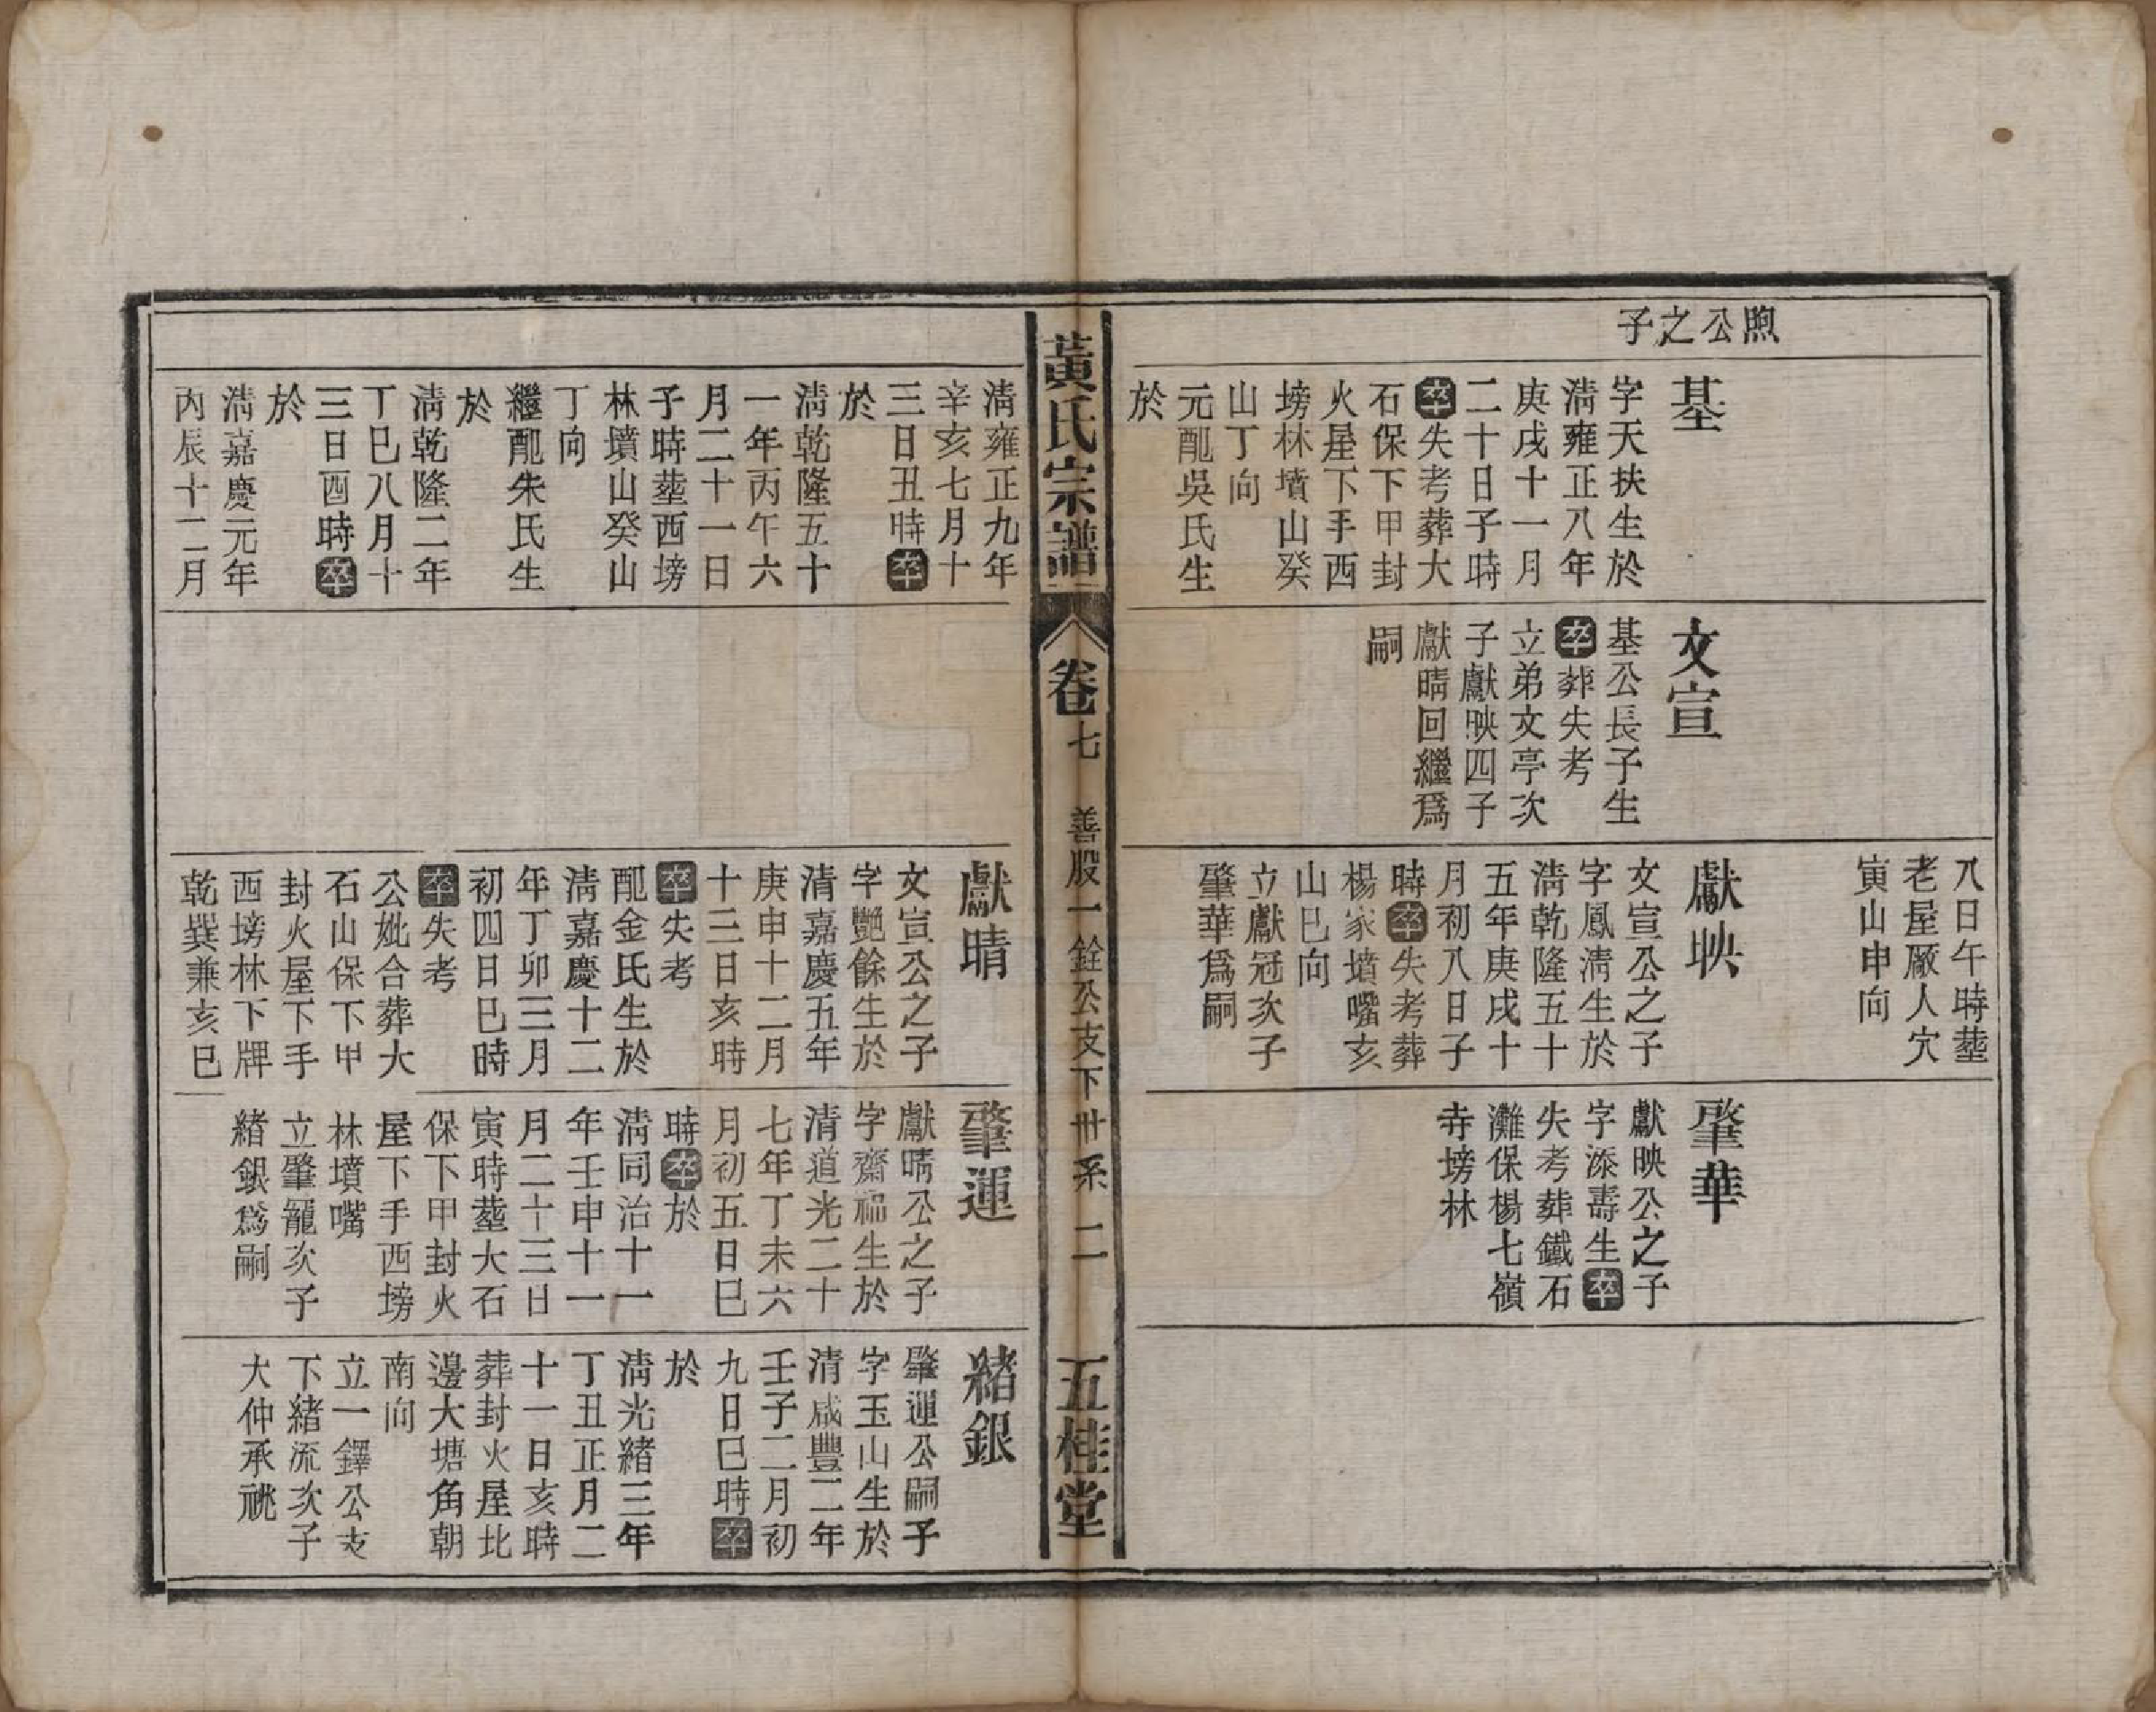 煦公之子
基
字天扶生於
淸雍正八年
庚戌十一月
二十日子時
卒失考葬大
石保下甲封
火屋下手西
塝林墳山癸
山丁向
元配吳氏生
於
文宣
基公長子生
卒葬失考
立弟文亭次
子獻映四子
獻晴回繼爲
嗣
八日午時塟
老屋厰人穴
寅山申向
獻映
文宣公之子
字鳳淸生於
淸乾隆五十
五年庚戌十
月初八日子
時卒失考葬
楊家墳嘴亥
山巳向
立獻冠次子
肇華爲嗣
肇華
獻映公之子
字添壽生卒
失考葬鐵石
灘保楊七嶺
寺塝林
黃氏宗譜
卷七
善股一銓公支下世系
二
五桂堂
淸雍正九年
辛亥七月十
三日丑時卒
於
淸乾隆五十
一年丙午六
月二十一日
子時塟西塝
林墳山癸山
丁向
繼配朱氏生
於
淸乾隆二年
丁巳八月十
三日酉時卒
於
淸嘉慶元年
丙辰十二月
獻晴
文宣公之子
字艷餘生於
清嘉慶五年
庚申十二月
十三日亥時
卒失考
配金氏生於
淸嘉慶十二
年丁卯三月
初四日巳時
卒失考
公妣合葬大
石山保下甲
封火屋下手
西塝林下牌
乾巽兼亥巳
肇運
獻晴公之子
字齋福生於
清道光二十
七年丁未六
月初五日巳
時卒於
淸同治十一
年壬申十一
月二十三日
寅時塟大石
保下甲封火
屋下手西塝
林墳嘴
立肇龍次子
緒銀爲嗣
緒銀
肇運公嗣子
字玉山生於
清咸豐二年
壬子二月初
九日巳時卒
於
淸光緒三年
丁丑正月二
十一日亥時
葬封火屋北
邊大塘角朝
南向
立一鐸公支
下緒流次子
大仲承祧